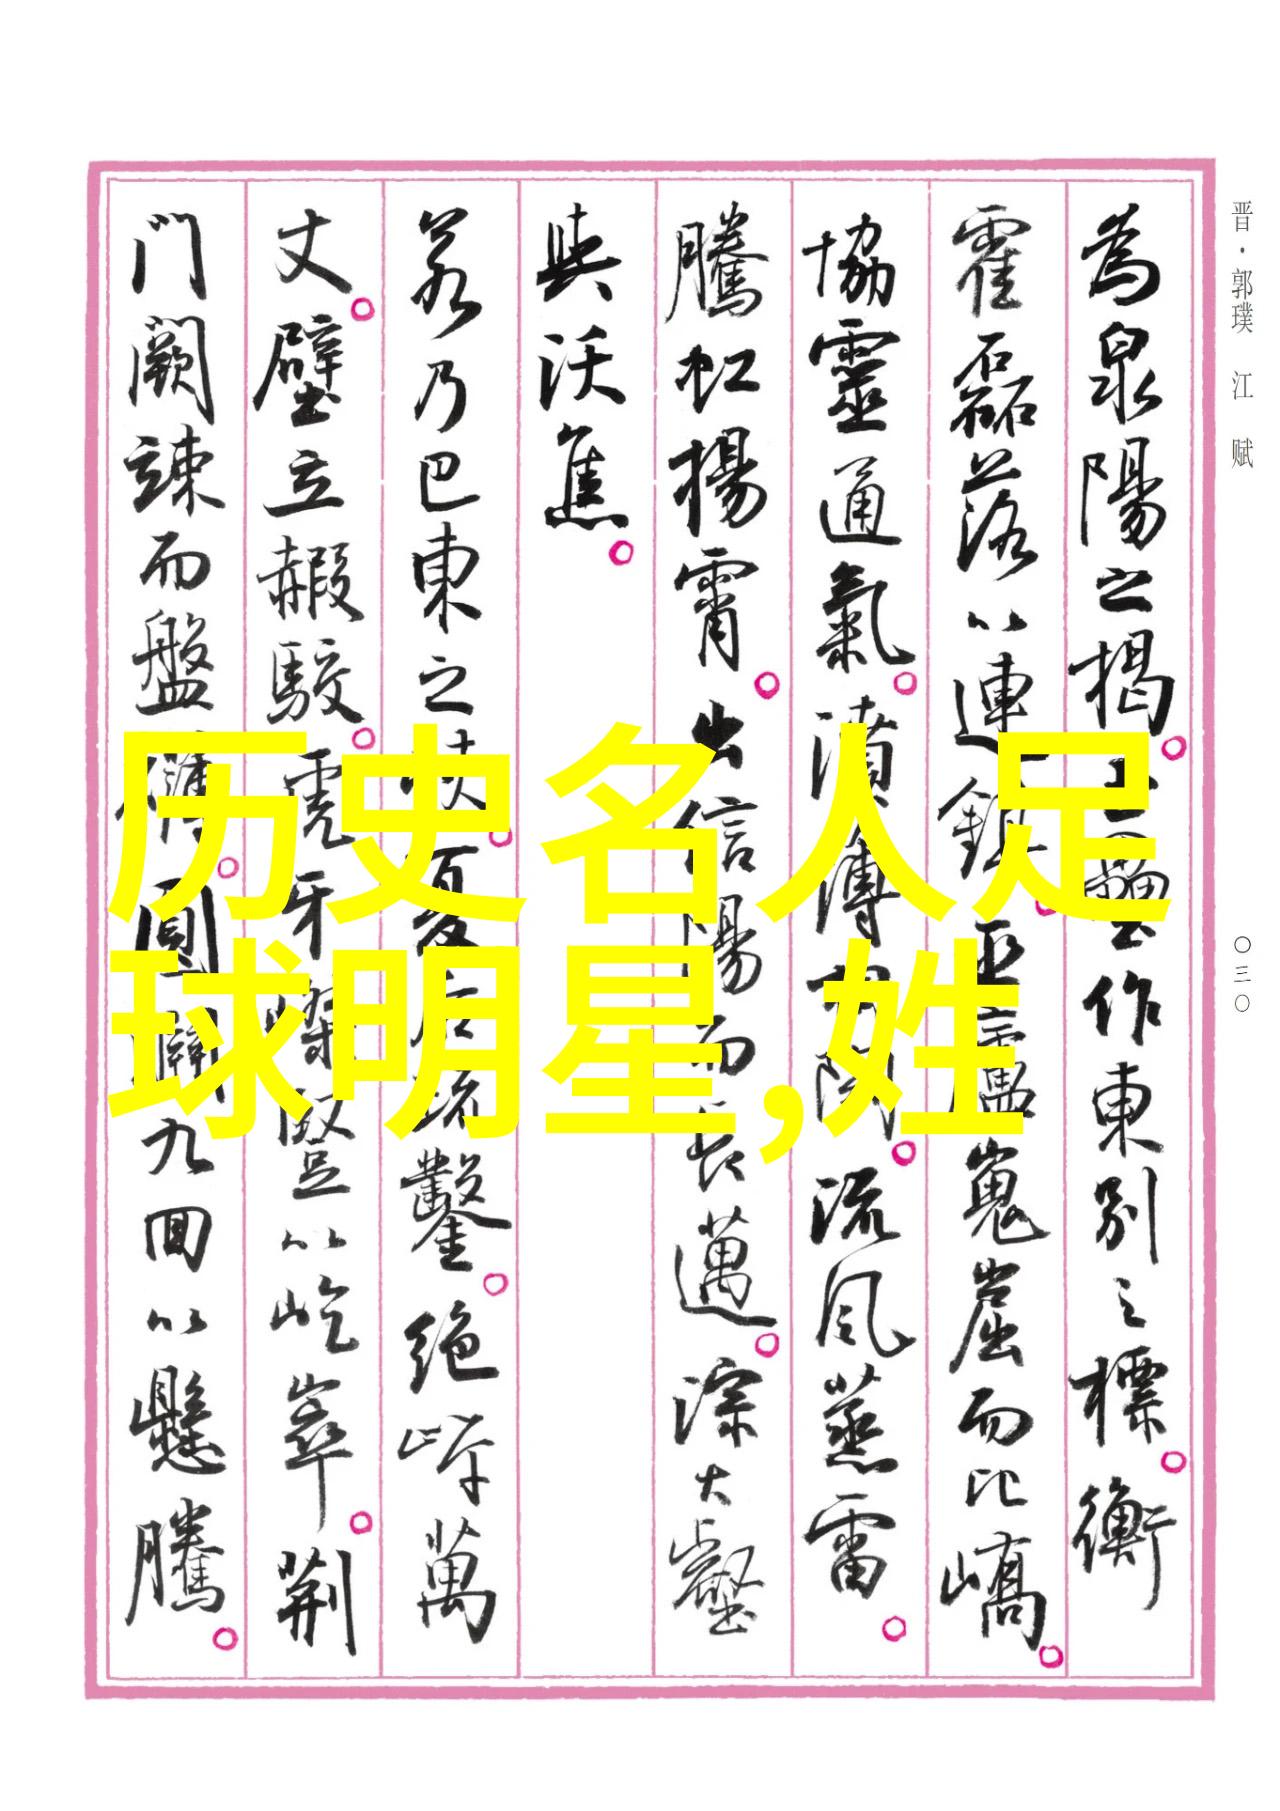 晋·郭璞 江赋
〇三〇
為泉陽之揭 玉壘作東別之標 衡
霍磊落以連鎮 巫廬嵬崫而比嶠
協靈通氣 濆薄相陶 流風蒸雷
騰虹揚霄 出信陽而長邁 淙大壑
與沃焦
若乃巴東之峽 夏后疏鑿 絕岸萬
丈 壁立赮駮 虎牙嵥豎以屹崒 荆
門闕竦而盤礴 圓淵九回以懸騰
历史名人足
球明星,姓